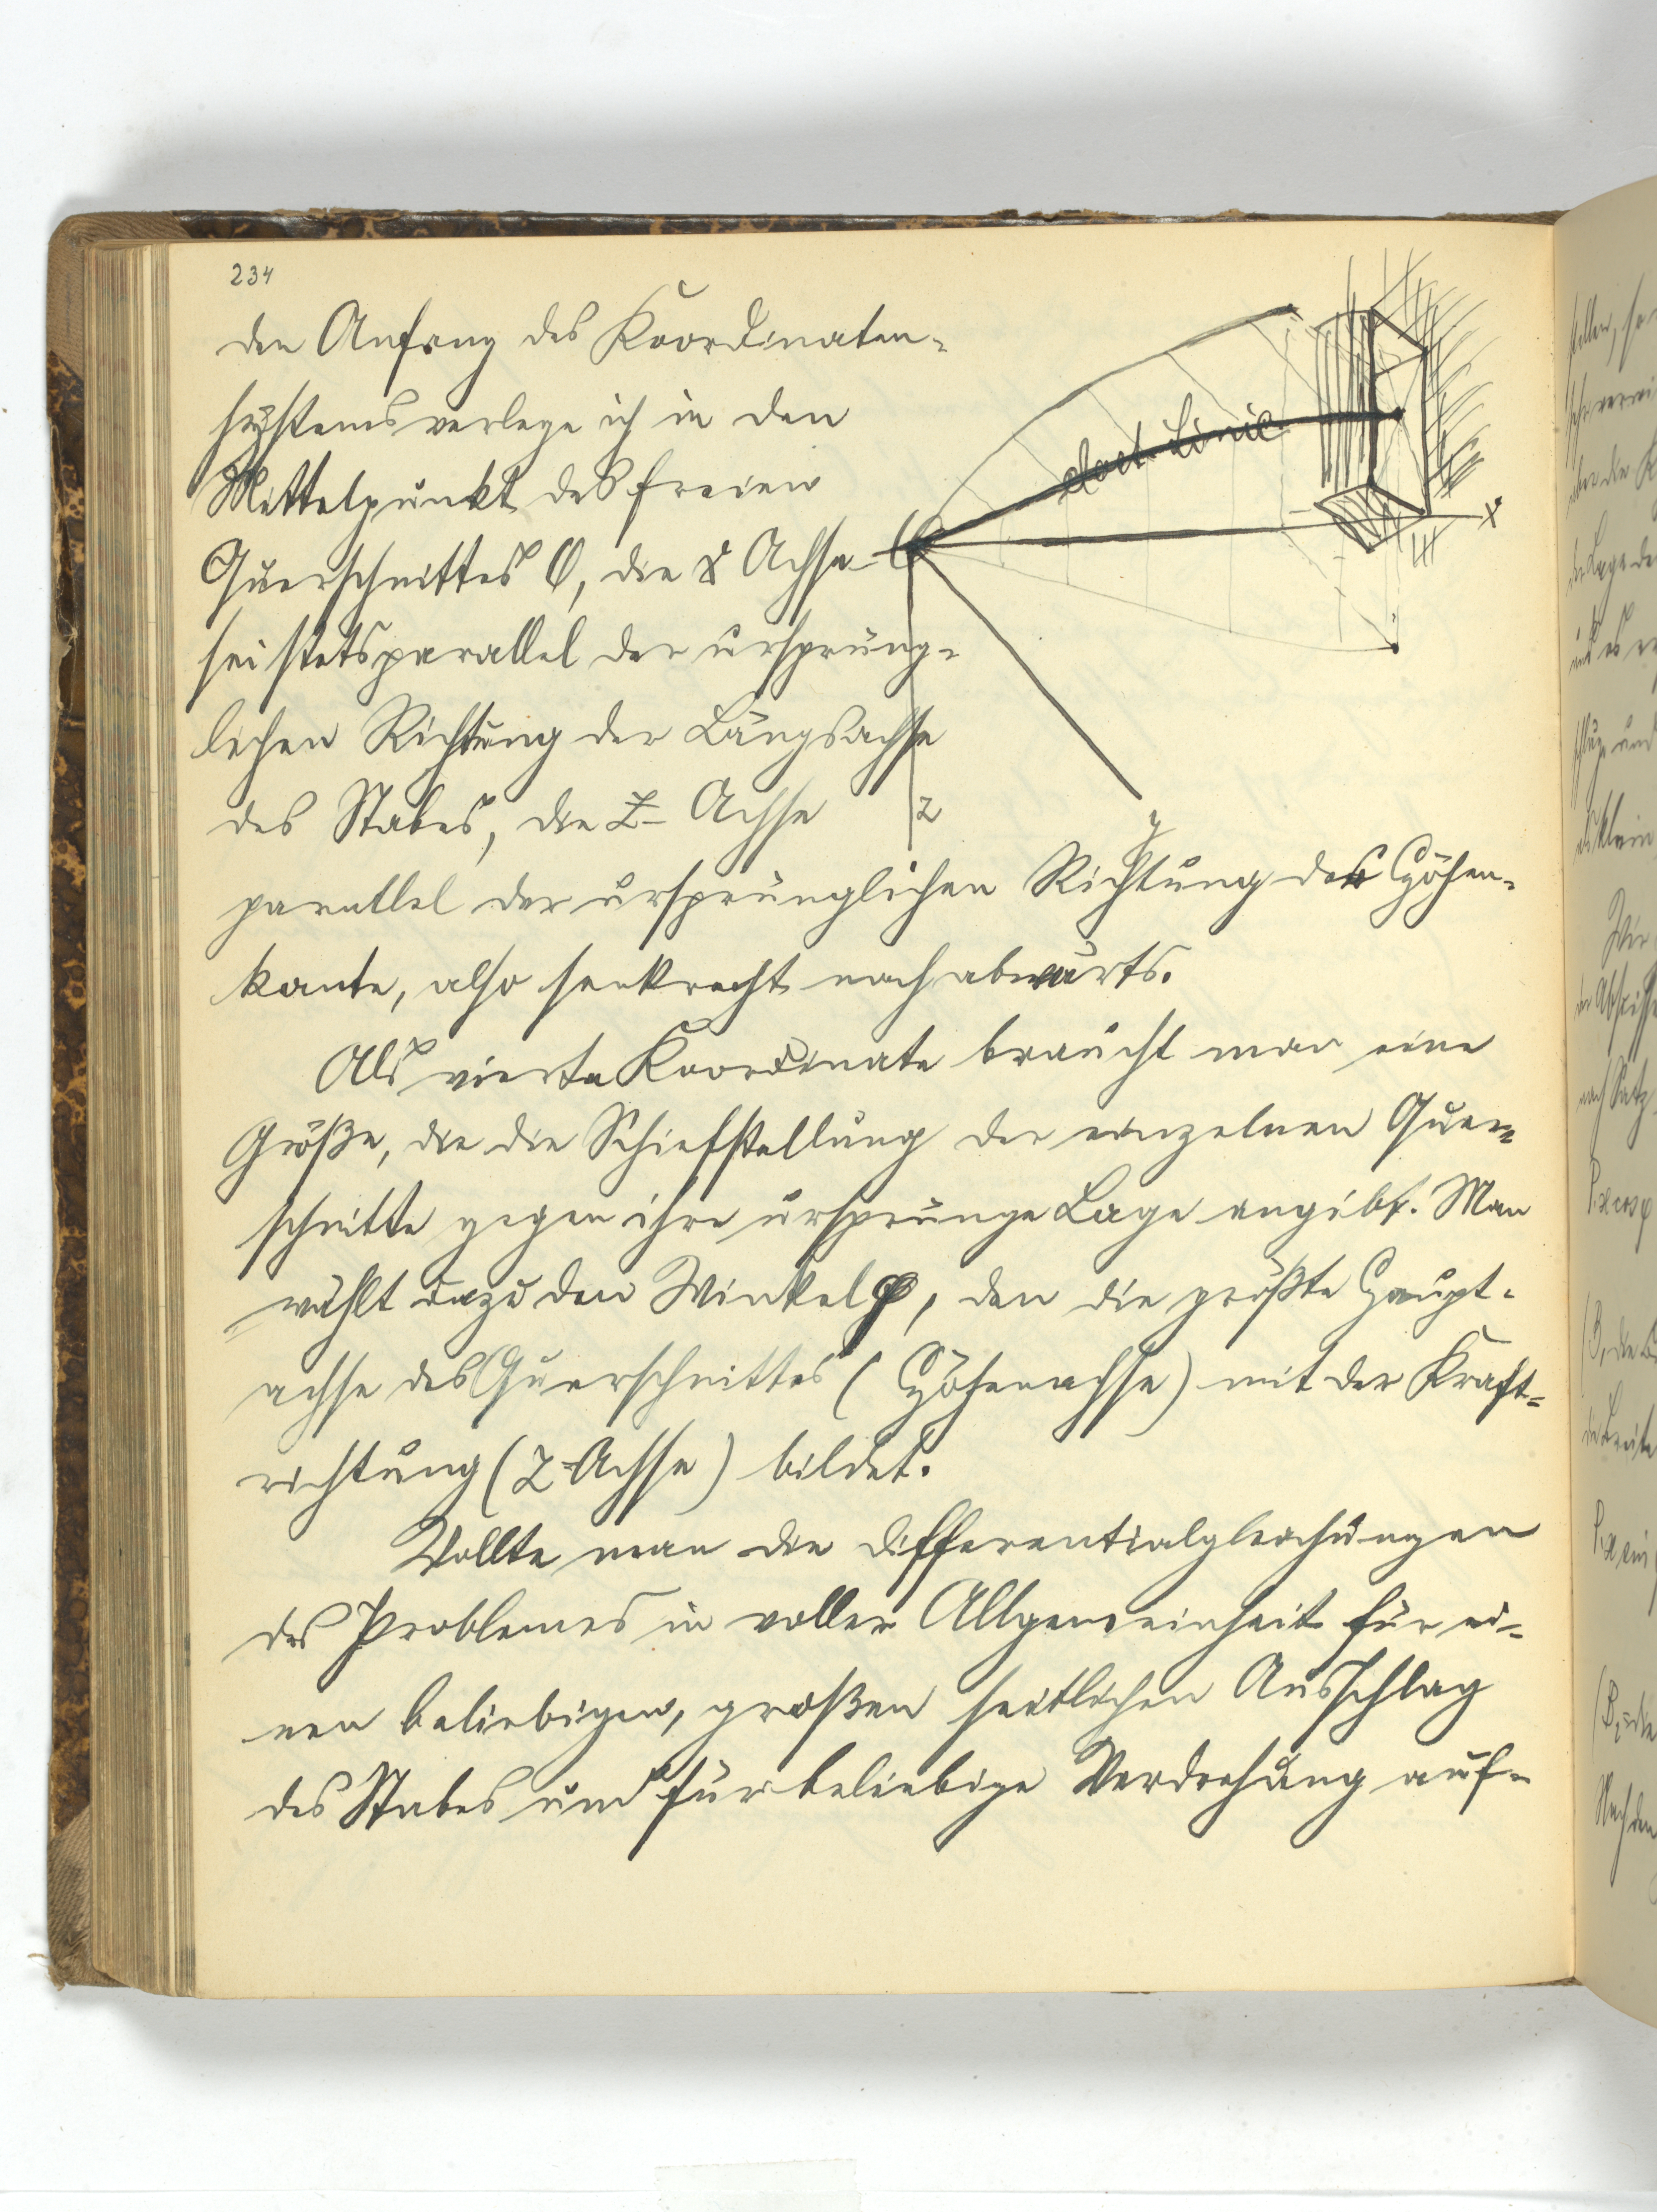 234
den Anfang des Koordinaten-
systems verlege ich in den
Mittelpunkt des freien
Querschnittes O, die X Achse
sei stets parallel der ursprüng-
lichen Richtung der Längsachse
des Stabes, die Z- Achse
parallel der ursprünglichen Richtung der Höhen-
kante, also senkrecht nach abwärts.
elast. Linie
x
y
z
Als vierte Koordinate braucht man eine
Größe, die die Schiefstellung der einzelnen Quer-
schnitte gegen ihre ursprunge Lage angibt. Man
wählt dazu den Winkel φ, den die größte Haupt-
achse des Querschnittes (Höhenachse) mit der Kraft-
richtung (Z-Achse) bildet.
Wollte man die Differentialgleichungen
des Problemes in voller Allgemeinheit für ei-
nen beliebigen, großen seitlichen Ausschlag
des Stabes und für beliebige Verdrehung auf-